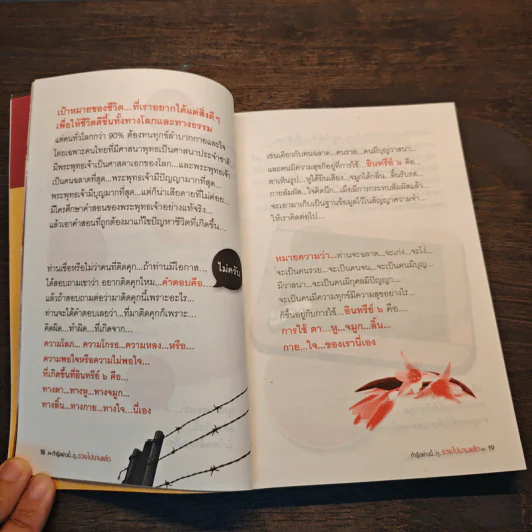 เป้าหมายของชีวิต...ที่เราอยากได้แต่สิ่งดีๆ
เพื่อให้ชีวิตดีขึ้นทั้งทางโลกและทางธรรม
แต่คนทั่วโลกกว่า 90% ต้องทนทุกข์ลำบากกายและใจ
โดยเฉพาะคนไทยที่มีศาสนาพุทธเป็นศาสนาประจำชาติ
มีพระพุทธเจ้าเป็นศาสดาเอกของโลก...และพระพุทธเจ้า
เป็นคนฉลาดที่สุด...พระพุทธเจ้ามีปัญญามากที่สุด...
พระพุทธเจ้ามีบุญมากที่สุด...แต่ก็น่าเสียดายที่ไม่ค่อย...
มีใครศึกษาคำสอนของพระพุทธเจ้าอย่างแท้จริง...
แล้วเอาคำสอนที่ถูกต้องมาแก้ไขปัญหาชีวิตที่เกิดขึ้น...
ไม่ครับ
ท่านเชื่อหรือไม่ว่าคนที่ติดคุก...ถ้าท่านมีโอกาส...
ได้สอบถามเขาว่า อยากติดคุกไหม...คำตอบคือ...
แล้วถ้าสอบถามต่อว่ามาติดคุกนี้เพราะอะไร...
ท่านจะได้คำตอบเลยว่า...ที่มาติดคุกก็เพราะ...
คิดผิด...ทำผิด...ที่เกิดจาก...
ความโลภ... ความโกรธ...ความหลง...หรือ...
ความพอใจหรือความไม่พอใจ...
ที่เกิดขึ้นที่อินทรีย์ ๖ คือ...
ทางตา...ทางหู...ทางจมูก...
ทางลิ้น...ทางกาย...ทางใจ...นี่เอง
18
เช่นเดียวกับคนฉลาด...คนรวย...คนมีบุญวาสนา...
และคนมีความสุขก็อยู่ที่การใช้...อินทรีย์ ๖ คือ...
ตาเห็นรูป...หูได้ยินเสียง...จมูกได้กลิ่น...ลิ้นรับรส...
กายสัมผัส...ใจคิดนึก...เมื่อมีการกระทบสัมผัสแล้ว...
จะเอามาเก็บเป็นฐานข้อมูลไว้ในสัญญาความจำ...
ให้เราคิดต่อไป...
หมายความว่า...ท่านจะฉลาด...จะเก่ง...จะโง่...
จะเป็นคนรวย...จะเป็นคนจน...จะเป็นคนมีบุญ...
มีวาสนา...จะเป็นคนมีกุศลมีปัญญา...
จะเป็นคนมีความทุกข์มีความสุขอย่างไร...
ก็ขึ้นอยู่กับการใช้...อินทรีย์ ๖ คือ...
การใช้ ตา...หู...จมูก...ลิ้น...
กาย...ใจ...ของเรานี่เอง
19